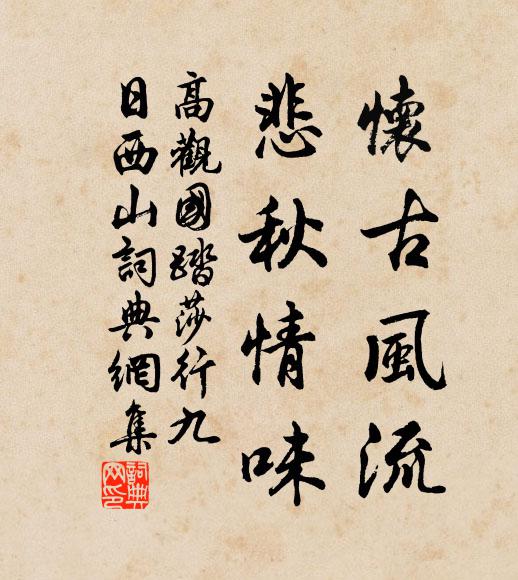 懷古風流
悲秋情味
高觀國踏莎行九
日西山詞典網集
詞典網印